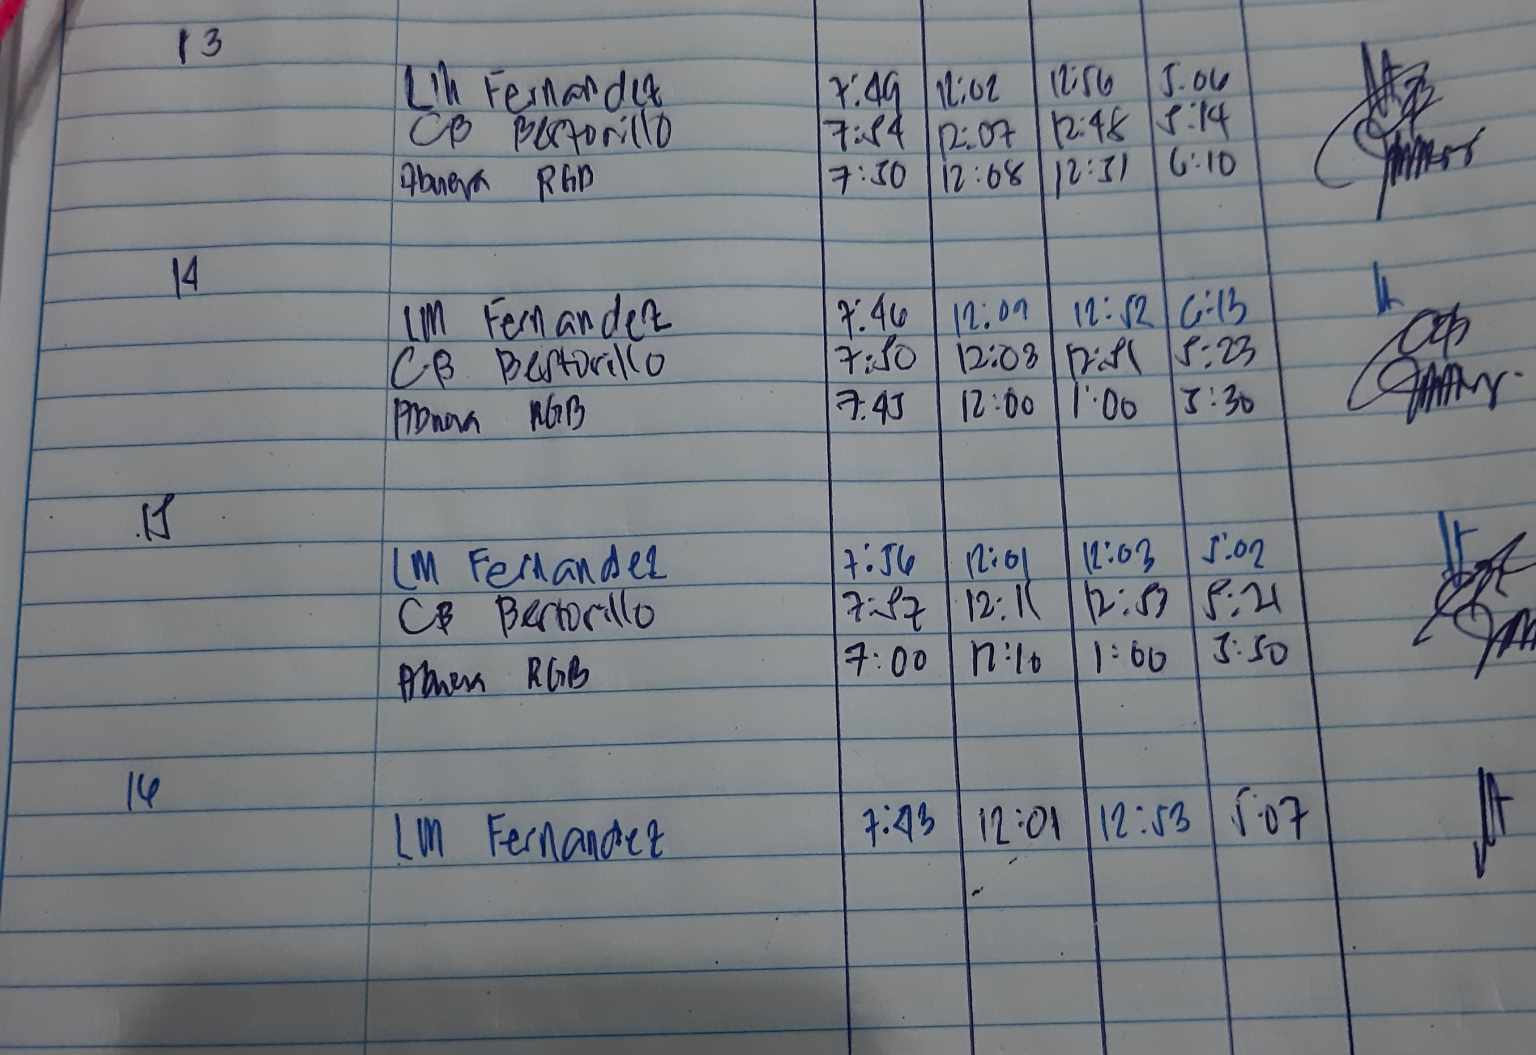 13
LM Fernandez 7:49 12:02 12:56 5:06
CB Bertorillo 7:54 12:07 12:48 5:14
RGB 7:50 12:08 12:51 6:10
14
LM Fernandez 7:46 12:01 12:52 6:13
CB Bertorillo 7:50 12:03 12:51 5:23
RGB 7:45 12:00 1:00 5:30
15
LM Fernandez 7:56 12:01 12:03 5:02
CB Bertorillo 7:57 12:11 12:57 5:21
RGB 7:00 12:10 1:00 5:50
16
LM Fernandez 7:43 12:01 12:53 5:07